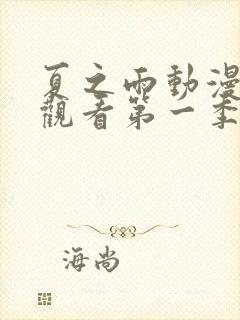 夏之雨動漫
觀看第一季
海尚